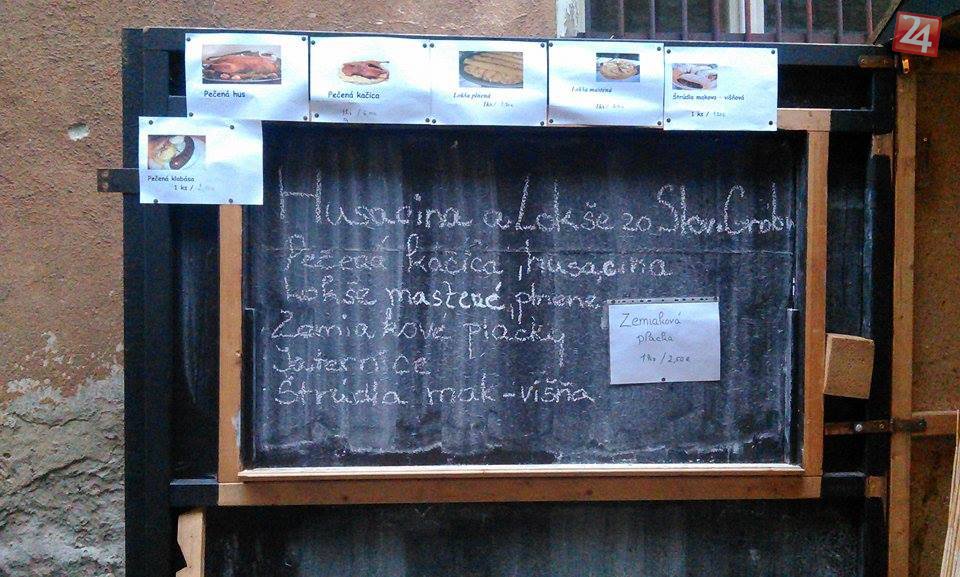 24
Pečená hus
Pečená kačica
Lokša plnená
1ks/
Lokša mastená
1ks/
Štrúdla makovo - višňová
1 ks /
Pečená klobása
1 ks /
Husacina a Lokše zo Slov. Grobu
Pečená kačica, husacina
Lokše mastené, plnene
Zemiakové placky
Jaternice
Štrúdla mak-višňa
Zemiaková
placka
1ks / 2,50€